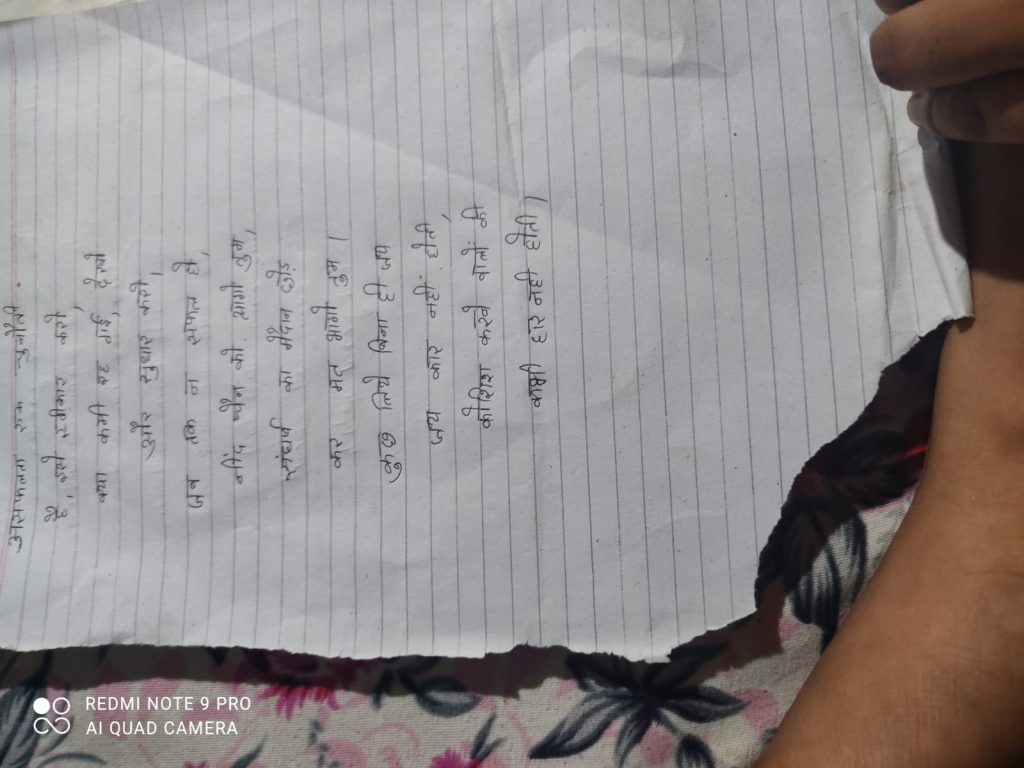 असफलता एक चुनौती
है, इसे स्वीकार करो
क्या कमी रह गई, देखो
और सुधार करो,
जब तक ना सफल हो,
नींद चैन को त्यागो तुम,
संघर्ष का मैदान छोड़
कर मत भागो तुम।
कुछ किये बिना ही जय
जय कार नहीं होती,
कोशिश करने वालों की
कभी हार नही होती।
REDMI NOTE 9 PRO
AI QUAD CAMERA